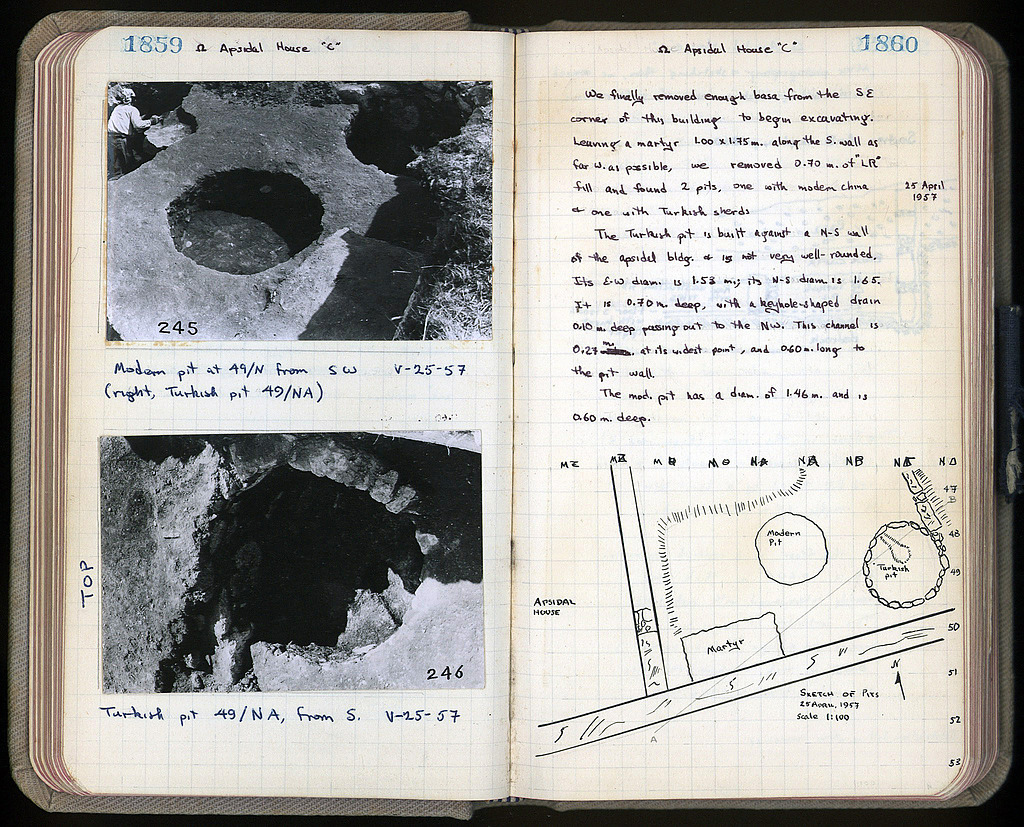 1859 Ω Apsidal House "C"
245
Modern pit at 49/N from SW V-25-57
(right, Turkish pit 49/NA)
TOP
246
Turkish pit 49/NA, from S. V-25-57
Ω Apsidal House "C" 1860
We finally removed enough basa from the SE
corner of this building to begin excavating.
Leaving a martyr 1.00 x 1.75 m. along the S. wall as
far W. as possible, we removed 0.70 m. of "LR"
fill and found 2 pits, one with modern china
& one with Turkish sherds
25 April
1957
The Turkish pit is built against a N-S wall
of the apsidal bldg. & is not very well-rounded.
Its E-W diam. is 1.53 m; its N-S diam is 1.65.
It is 0.70 m. deep, with a keyhole-shaped drain
0.10 m. deep passing out to the NW. This channel is
0.27 m. at its widest point, and 0.60 m. long to
the pit wall.
The mod. pit has a diam. of 1.46 m. and is
0.60 m. deep.
ΜΖ ΜΘ ΝΑ ΝΒ ΝΓ ΝΔ
47
B
48
49
50
51
52
53
Modern
Pit
Turkish
pit
APSIDAL
HOUSE
Martyr
N
SKETCH OF PITS
25 APRIL, 1957
Scale 1:100
A